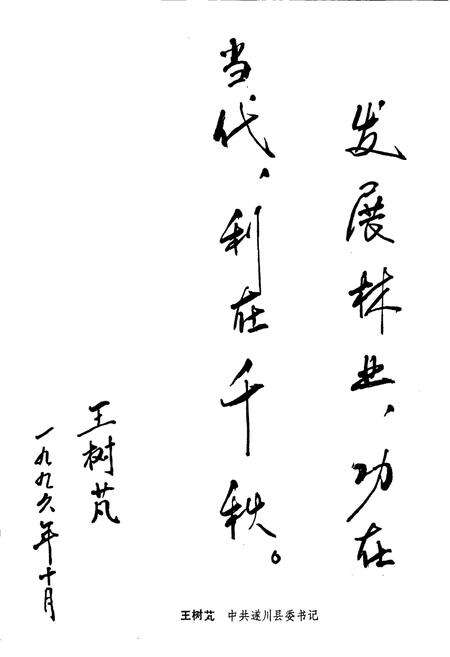 发展林业,功在
当代,利在千秋。
王树芃
一九九六年十月
王树芃 中共遂川县委书记